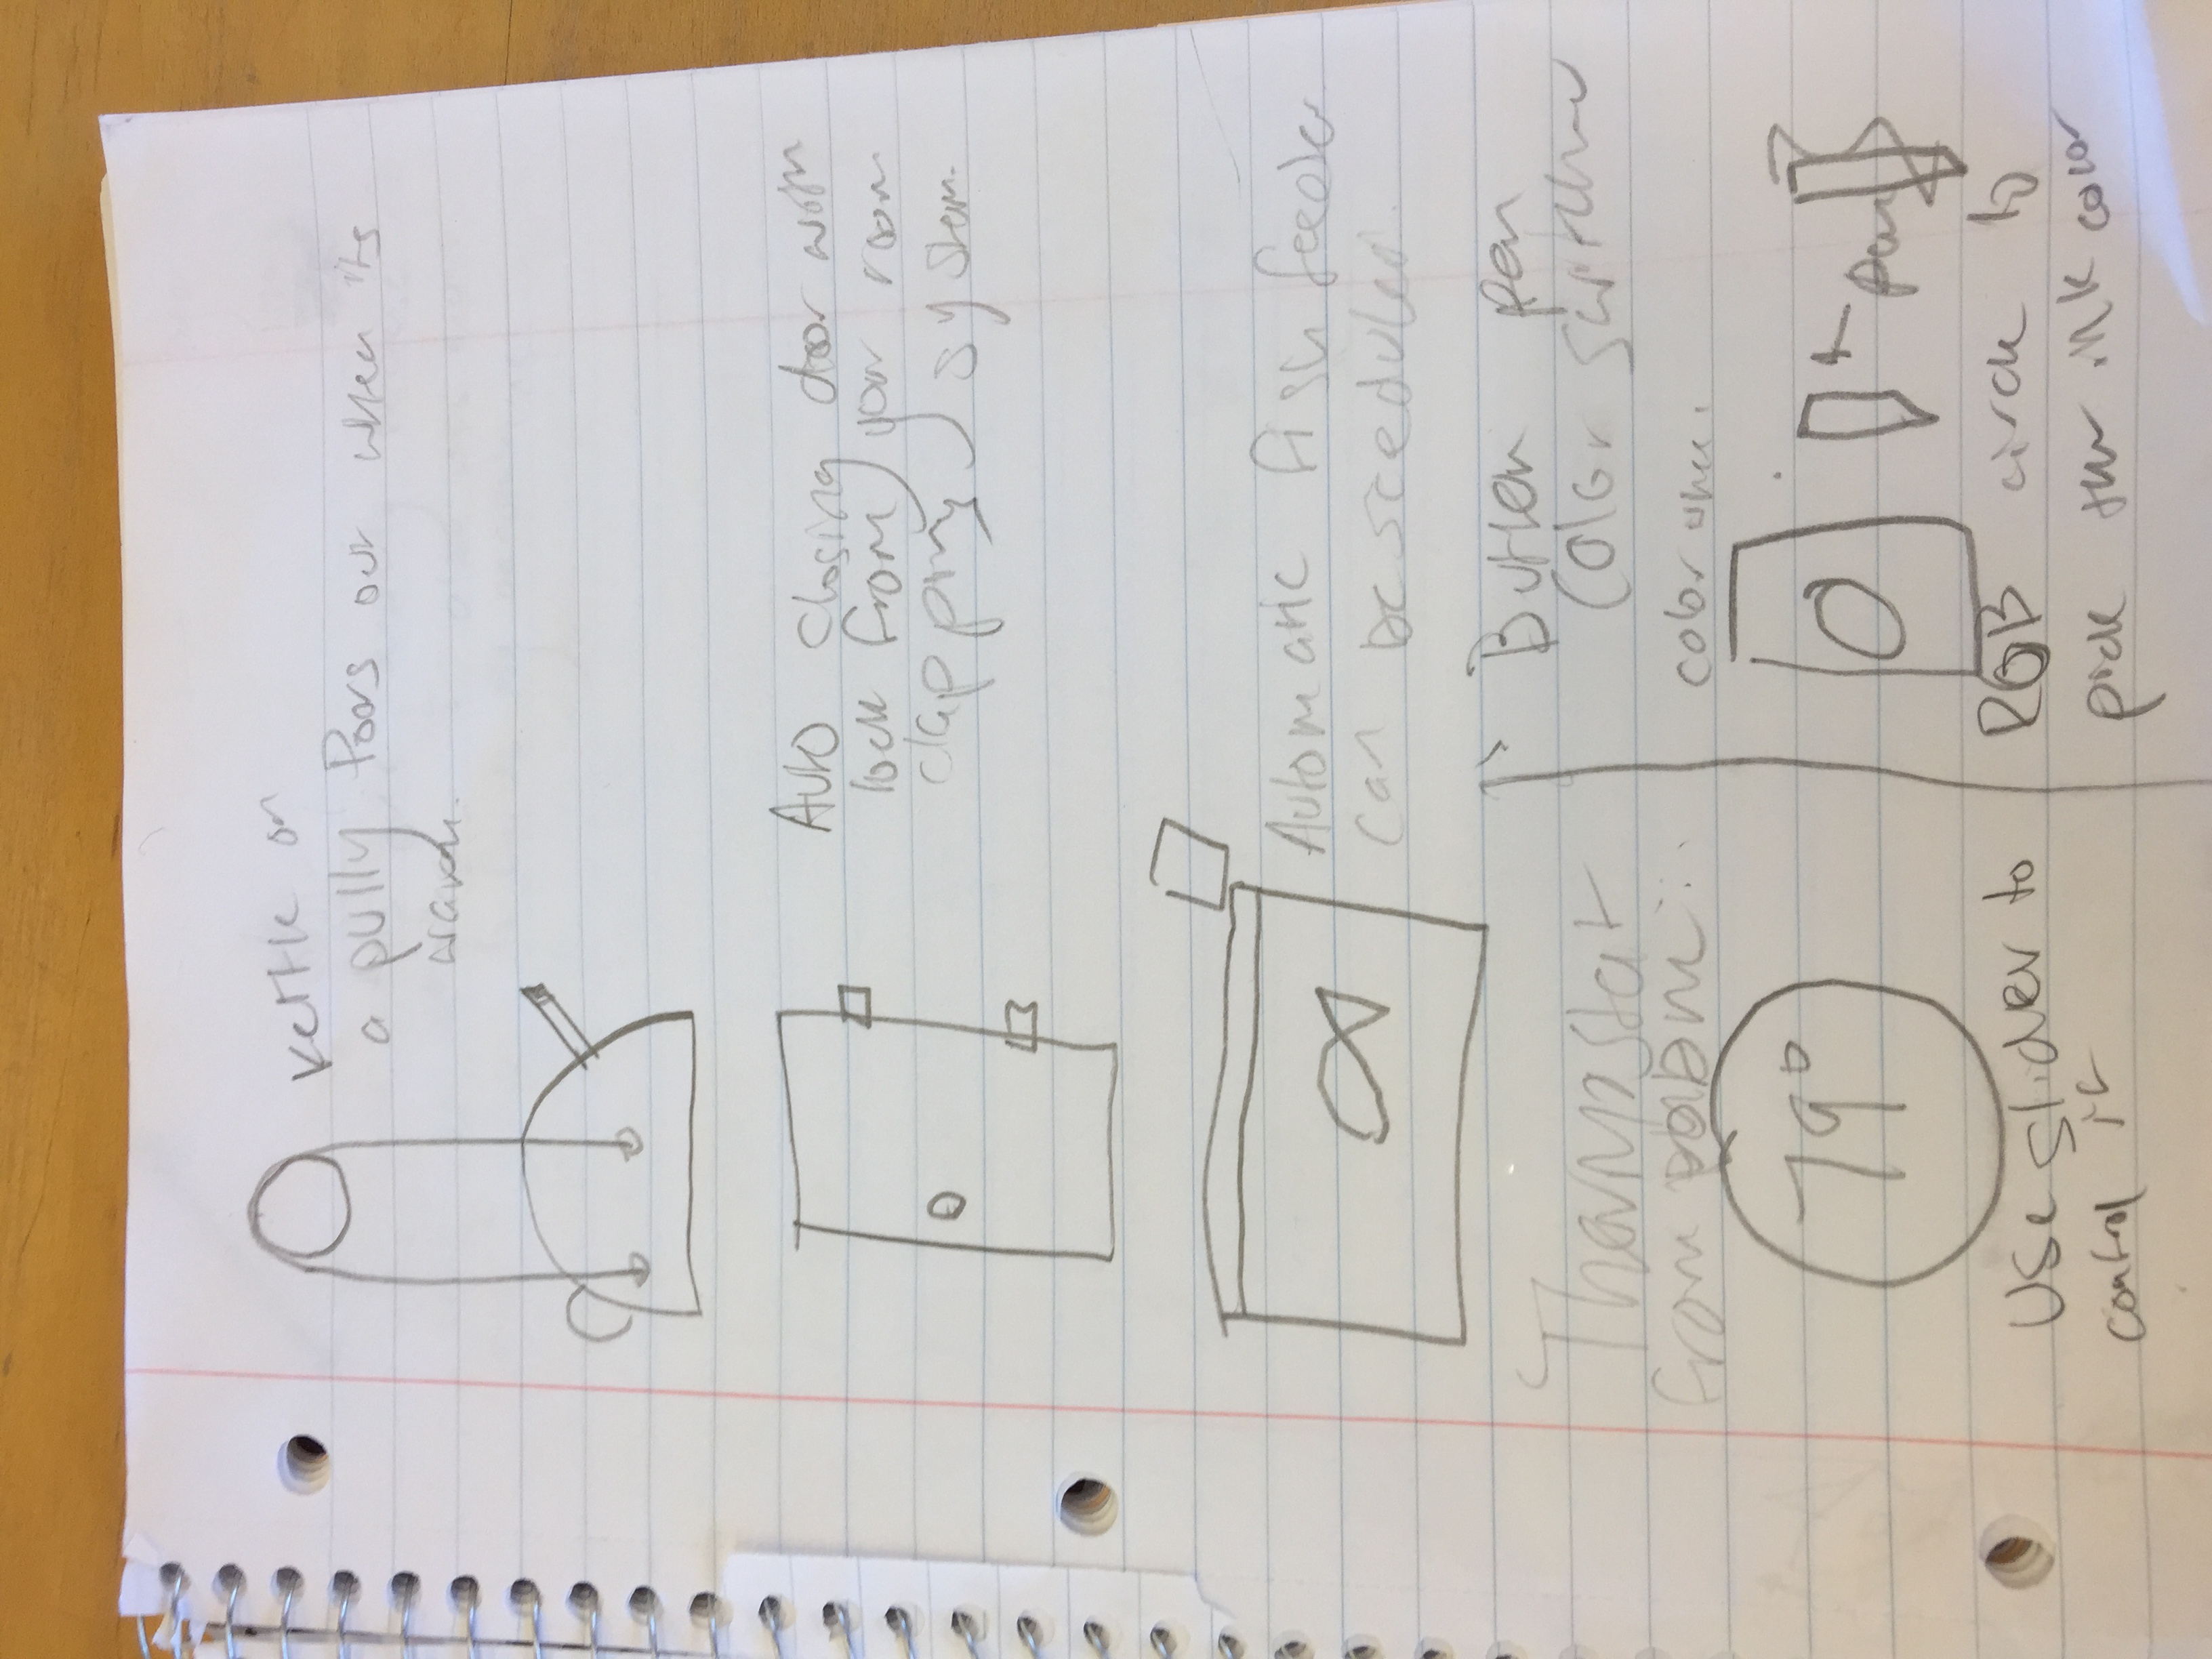 Kettle on
a pully Poors out when its
warm.
Auto closing door with
lock from your room
clapping system.
Automatic fish feeder
can be sceduled.
Thermostat
from
79°
Use slider to
control it
Button pen
Color switcher
color
pen
RGB circle to
pick the ink color